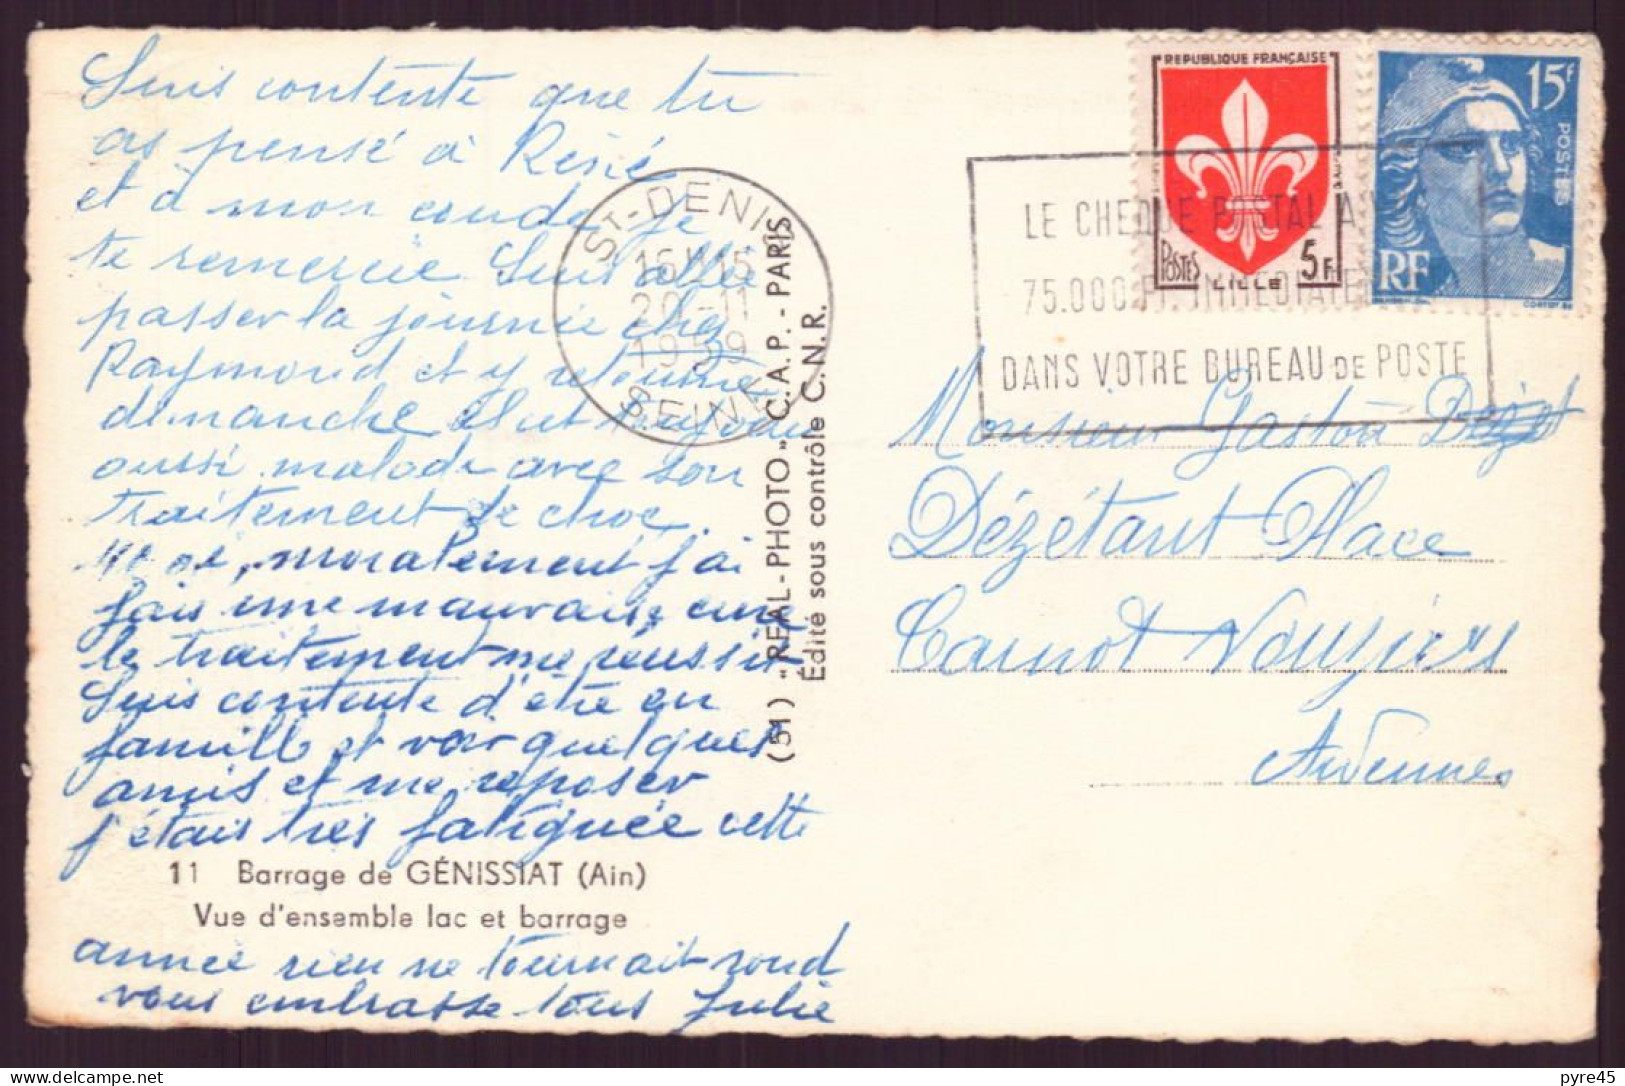 Suis contente que tu
as pensé à René
et à mon coude je
te remercie Suis allée
passer la journée chez
Raymond et y retourne
dimanche est toujours
aussi malade avec son
traitement de choc.
moralement j'ai
fais une mauvaise cure
le traitement me réussit
Suis contente d'être en
famille et voir quelques
amis et me reposer
j'étais très fatiguée cette
11 Barrage de GÉNISSIAT (Ain)
Vue d'ensemble lac et barrage
année rien ne tournait rond
vous embrasse tous Julie
ST-DENIS
16H15
20-11
1959
SEINE
(51) "REAL-PHOTO" C.A.P. - PARIS
Édité sous contrôle C.N.R.
REPUBLIQUE FRANÇAISE
POSTES
5F
LILLE
15F
POSTES
RF
LE CHEQUE POSTAL A VUE
75.000 Fr. IMMEDIATEMENT
DANS VOTRE BUREAU DE POSTE
Monsieur Gaston
Dézétant Place
Carnot Vouziers
Ardennes
pyre45